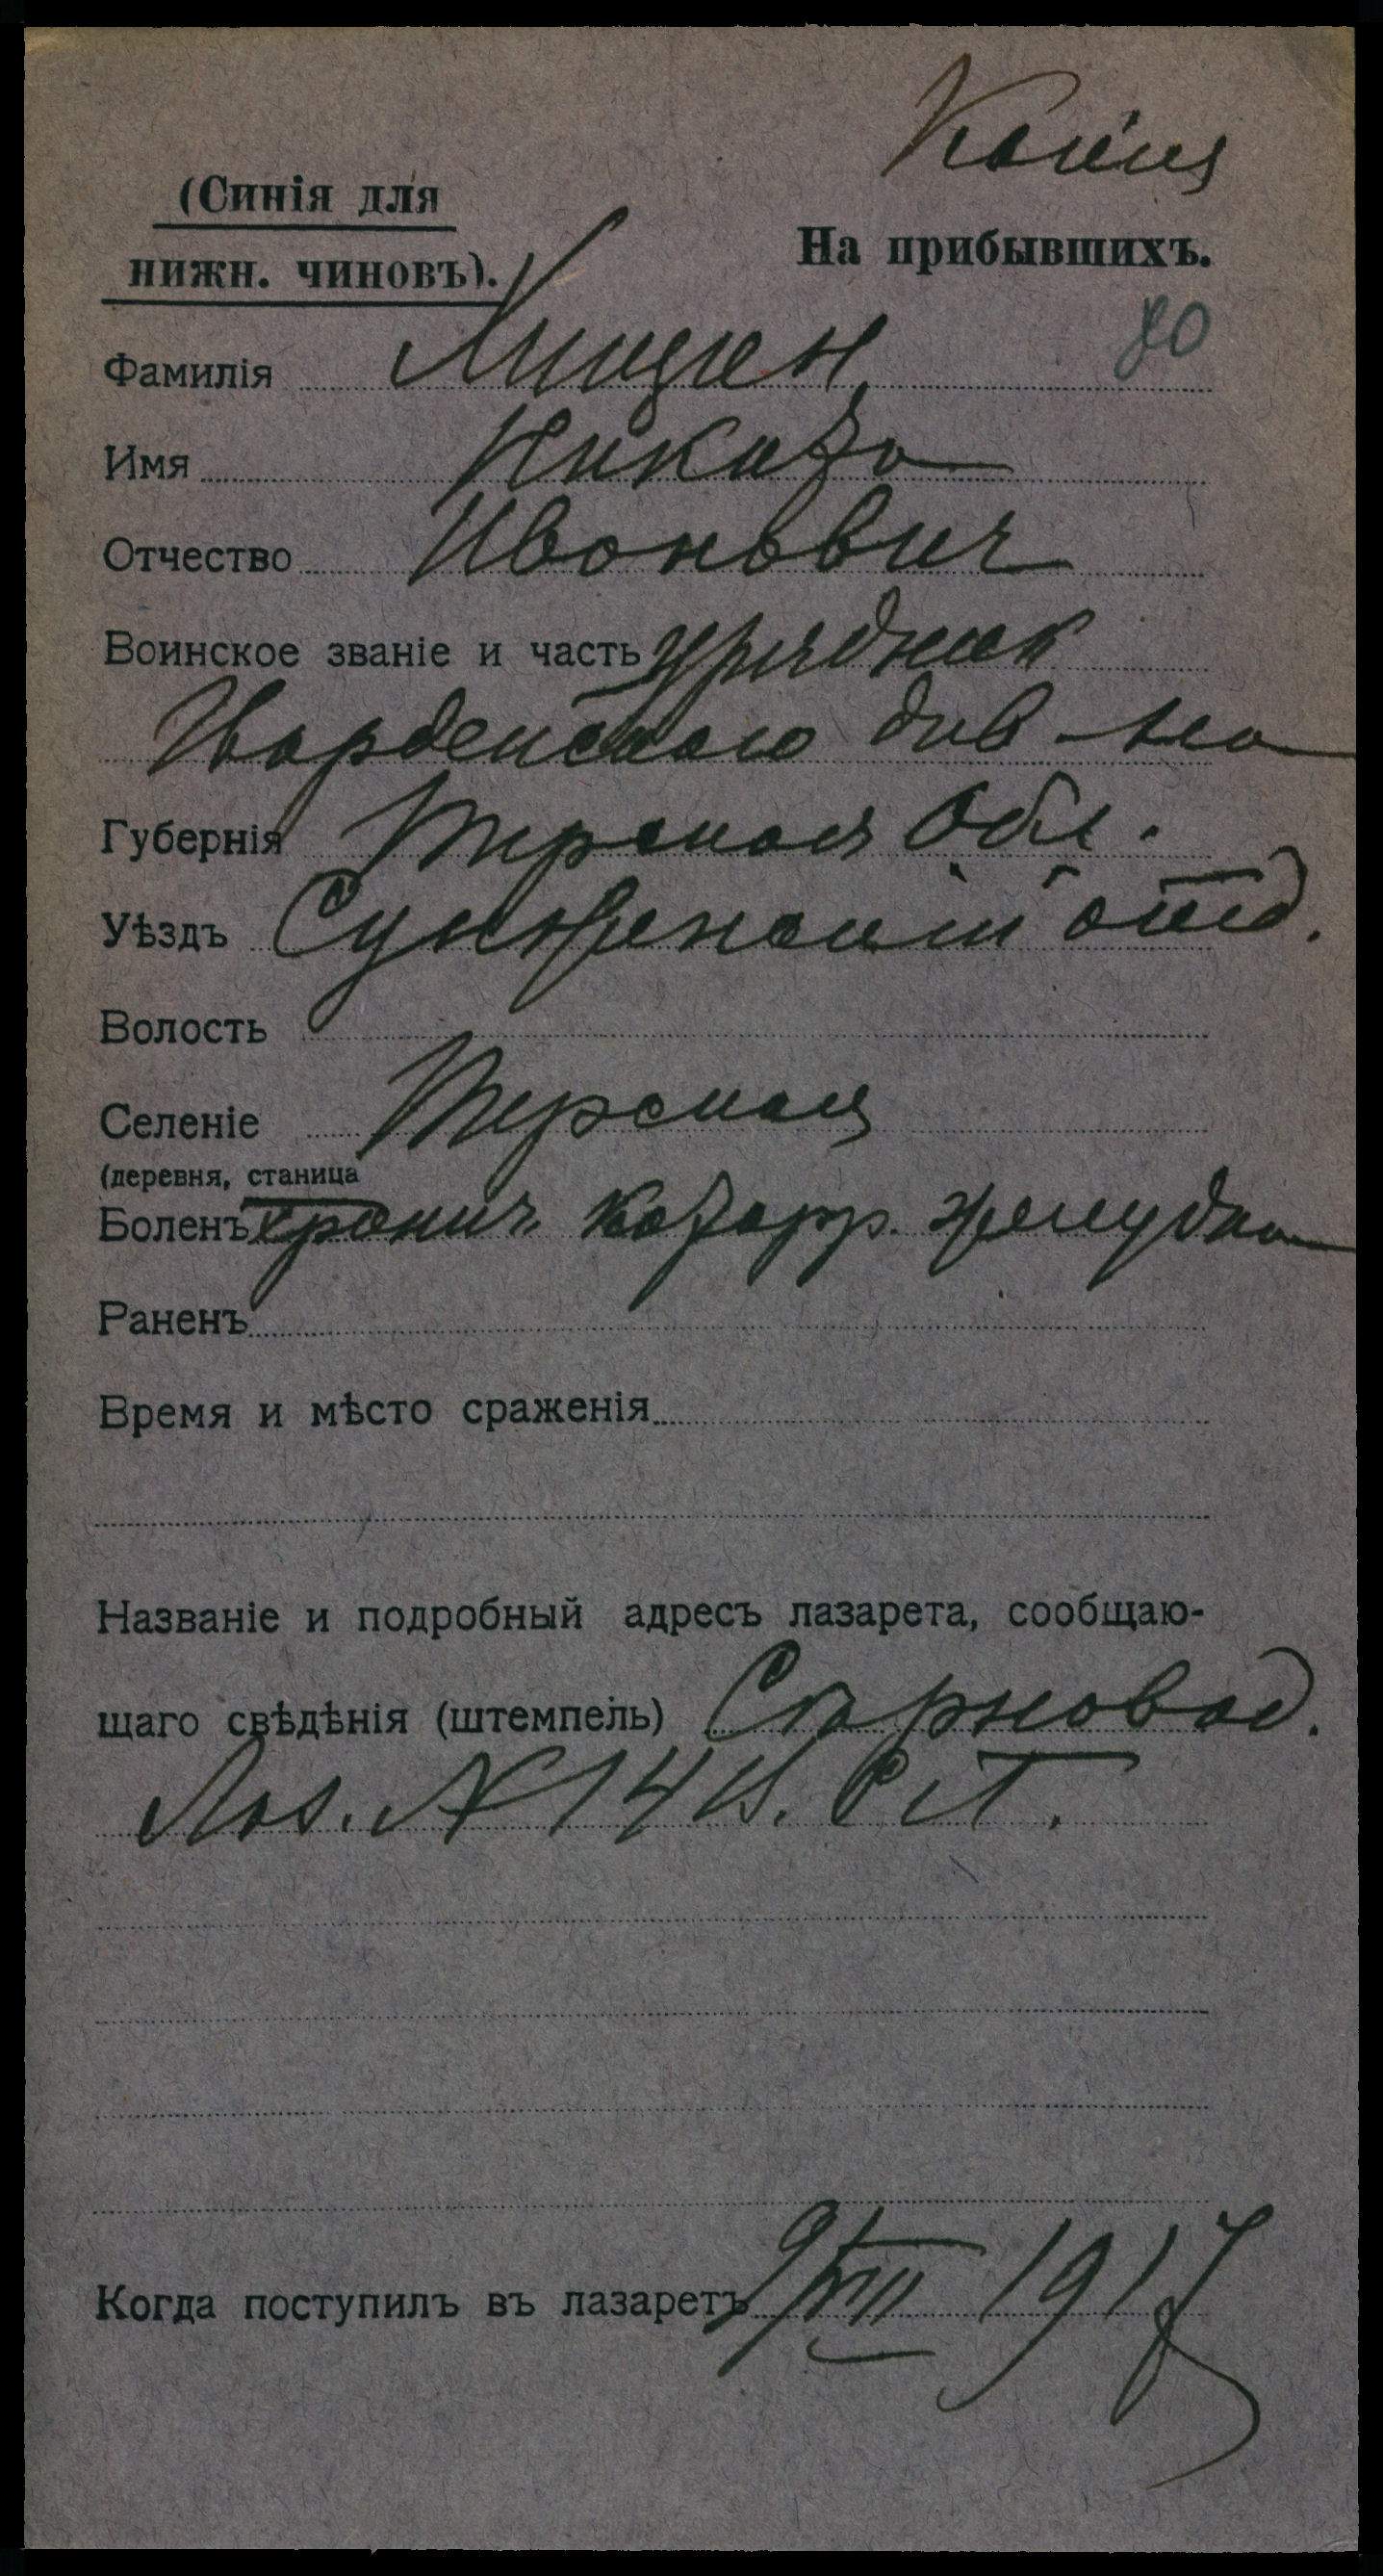 Копия
(Синія для
нижн. чиновъ).
На прибывшихъ.
80
Фамилія
Имя Никита
Отчество Иванович
Воинское званіе и часть урядник
Гвардейского див-на
Губернія Терская Обл.
Уѣздъ Сунженский отд.
Волость
Селеніе Терская
(деревня, станица
Боленъ хронич. катарр. желудка
Раненъ
Время и мѣсто сраженія
Названіе и подробный адресъ лазарета, сообщаю-
щаго свѣдѣнія (штемпель)
Лаз. № 14
Когда поступилъ въ лазаретъ 9/VIII 1917